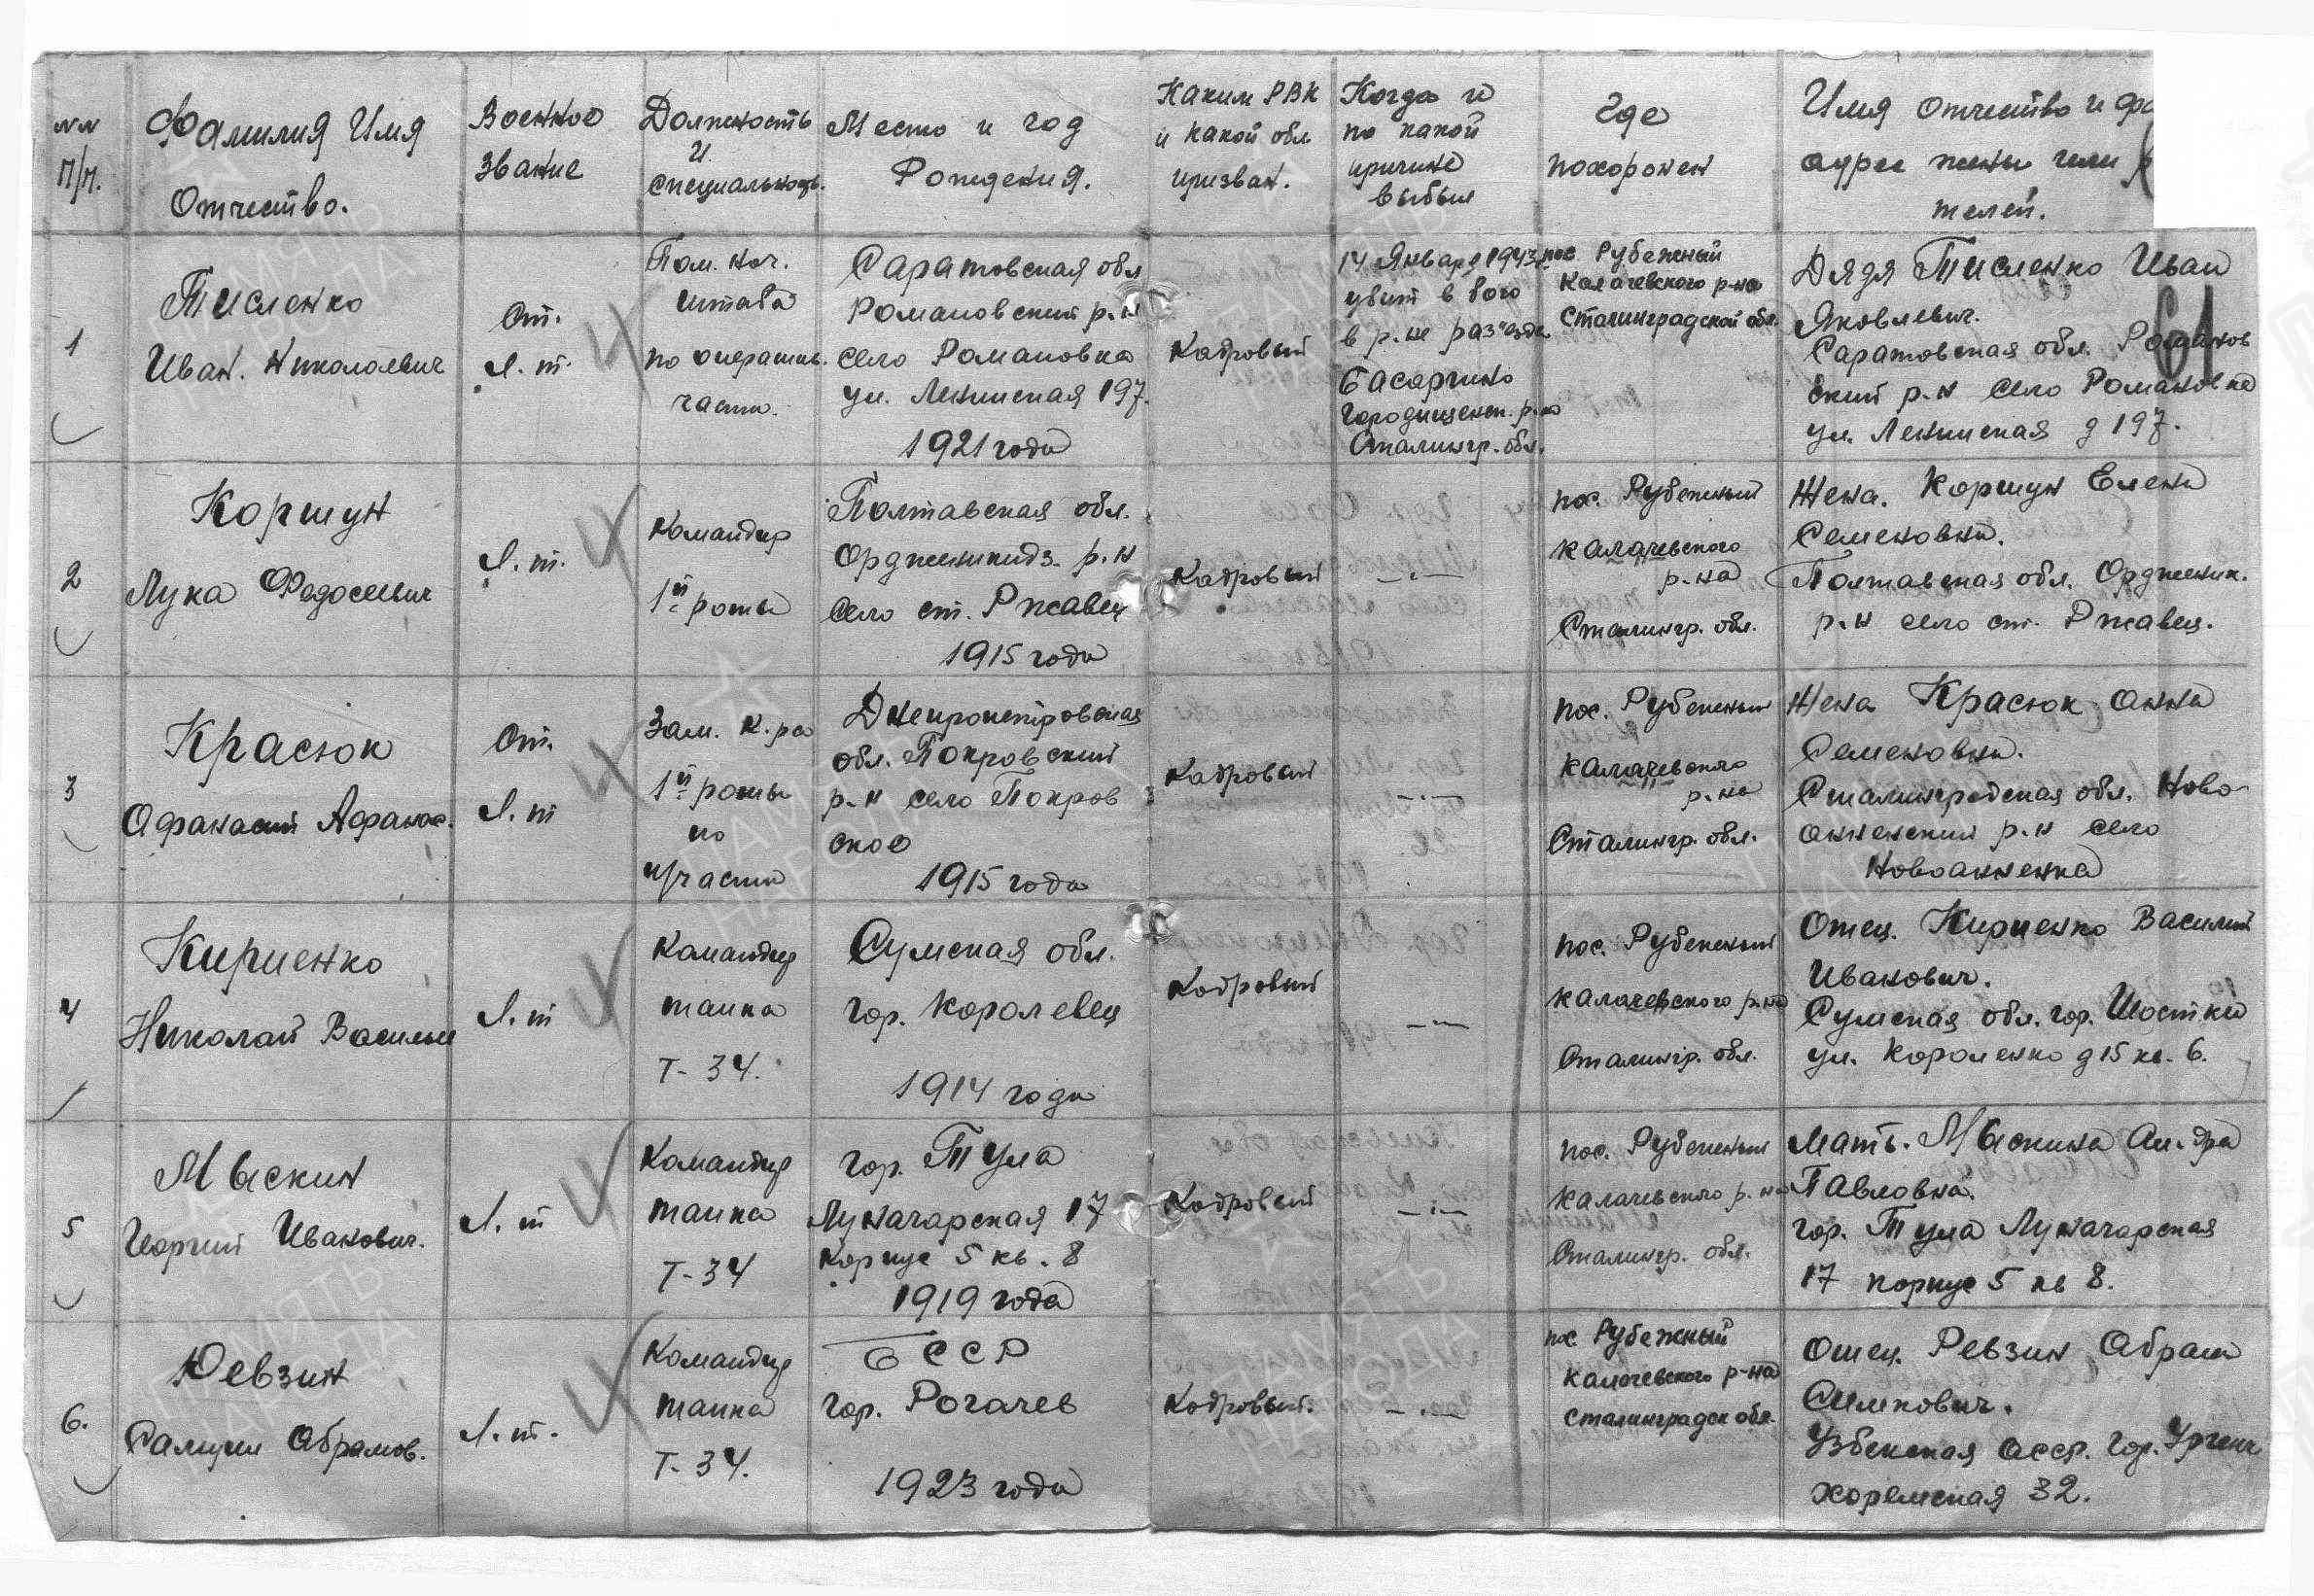 №№ п/п.
Фамилия Имя
Отчество.
Военное
звание
Должность
и
специальность.
Место и год
Рождения.
Каким РВК
и какой обл.
призван.
Когда и
по какой
причине
выбыл
Где
похоронен
Имя отчество и фа
адрес жены или р
телей.
61
1
Тисленко
Иван. Николаевич
Ст.
Л.т.
Пом. нач.
штаба
по оператив.
части.
Саратовская обл
Романовский р.н
село Романовка
ул. Ленинская 197.
1921 года
Кадровый
14 Января 1943
убит в бою
в р.не раз'езда
Басаргино
Городищенск. р-на
Сталингр. обл.
пос Рубежный
Калачевского р-на
Сталинградской обл.
Дядя Тисленко Иван
Яковлевич.
Саратовская обл. Романов
ский р.н село Романовка
ул. Ленинская д 197.
2
Коршун
Лука Федосеевич
Л.т.
Командир
1й роты
Полтавская обл.
Орджоникидз. р.н
село ст. Ржавец
1915 года
Кадровый
—.—
пос. Рубежный
Калачевского
р.на
Сталингр. обл.
Жена. Коршун Елена
Семеновна.
Полтавская обл. Орджоник.
р.н село ст. Ржавец.
3
Красюк
Афанасий Афанас.
Ст.
Л.т
Зам. к.ра
1й роты
по
п/части
Днепропетровская
обл. Покровский
р.н село Покров
ское
1915 года
Кадровый
—.—
пос. Рубежный
Калачевского
р.на
Сталингр. обл.
Жена Красюк Анна
Семеновна.
Сталинградская обл. Ново-
анненский р.н село
Новоанненка
4
Кириенко
Николай Василье
Л.т
Командир
танка
Т-34.
Сумская обл.
гор. Королевец
1914 года
Кадровый
—.—
пос. Рубежный
Калачевского р.на
Сталингр. обл.
Отец. Кириенко Василий
Иванович.
Сумская обл. гор. Шостка
ул. Короленко д 15 кв. 6.
5
Мыскин
Георгий Иванович.
Л.т
Командир
танка
Т-34
гор. Тула
Луначарская 17
корпус 5 кв. 8
1919 года
Кадровый
—.—
пос. Рубежный
Калачевского р.на
Сталингр. обл.
Мать. Мыскина Ал-дра
Павловна.
гор. Тула Луначарская
17 корпус 5 кв 8.
6.
Ревзин
Самуил Абрамов.
Л.т.
Командир
танка
Т-34.
БССР
гор. Рогачев
1923 года
Кадровый.
—.—
пос Рубежный
Калачевского р-на
Сталинградск обл.
Отец. Ревзин Абрам
Симкович.
Узбекская ССР. гор. Ургенч
Хоремская 32.
ПАМЯТЬ
НАРОДА